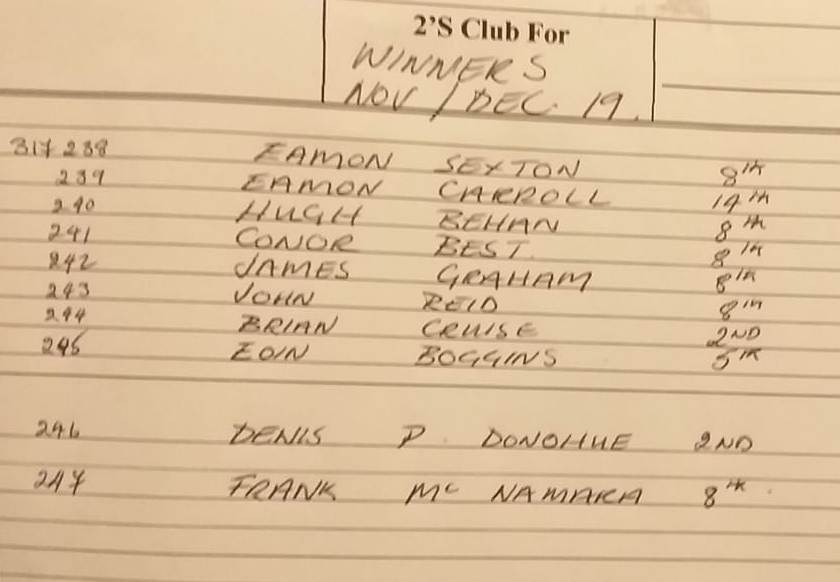 2'S Club For
WINNERS
NOV / DEC. 19.
317 238 EAMON SEXTON 8th
239 EAMON CARROLL 14th
240 HUGH BEHAN 8th
241 CONOR BEST. 8th
242 JAMES GRAHAM 8th
243 JOHN REID 8th
244 BRIAN CRUISE 2ND
245 EOIN BOGGINS 5th
246 DENIS P. DONOHUE 2ND
247 FRANK Mc NAMARA 8th.